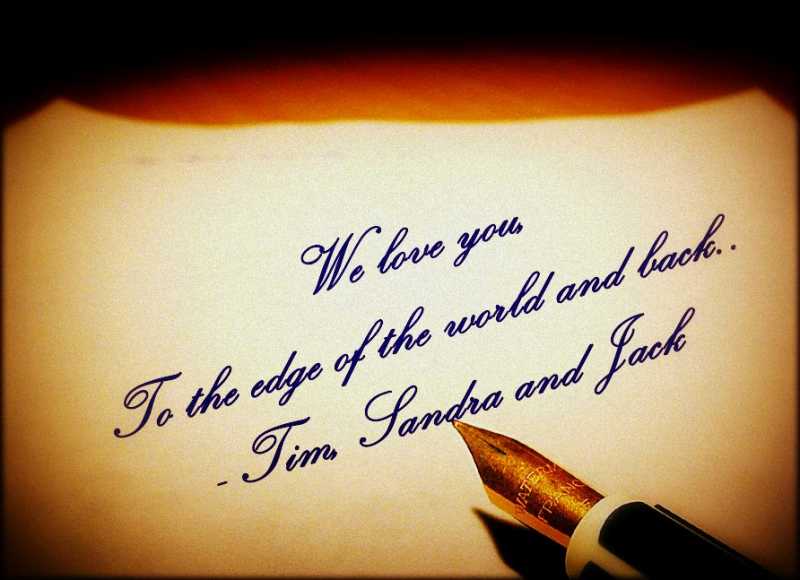 We love you,
To the edge of the world and back..
- Tim, Sandra and Jack
WATERM